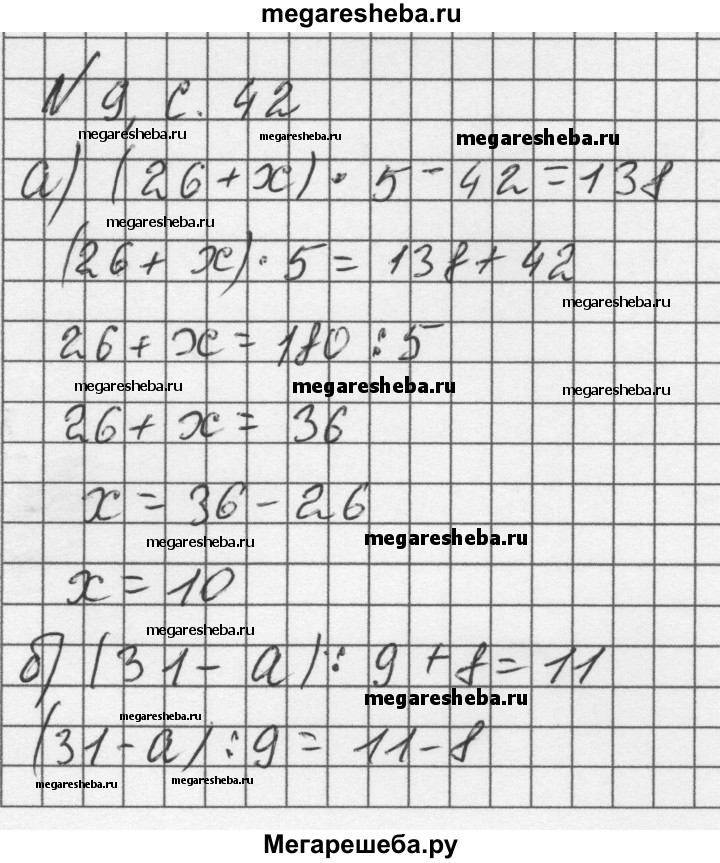 megaresheba.ru
N 9, с. 42
megaresheba.ru megaresheba.ru megaresheba.ru
а) (26+х)· 5-42=138
megaresheba.ru
(26+ х)·5= 138+42
megaresheba.ru
26+х=180:5
megaresheba.ru megaresheba.ru megaresheba.ru
26+х= 36
х=36-26
megaresheba.ru megaresheba.ru
х=10
megaresheba.ru
б) (31- а): 9+8=11
megaresheba.ru
megaresheba.ru
(31-а):9= 11-8
megaresheba.ru megaresheba.ru
Мегарешеба.ру